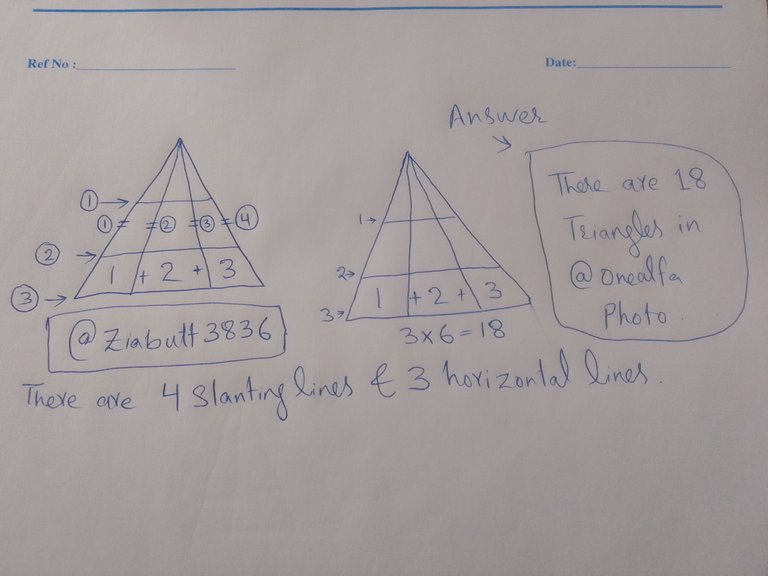 Ref No : Date:
Answer
There are 18
Triangles in
@onealfa
Photo.
① →
① = = ② = ③ = ④
② →
1 + 2 + 3
③ →
@Ziabutt3836
1→
2→
1 + 2 + 3
3→
3×6=18
There are 4 Slanting lines & 3 horizontal lines.